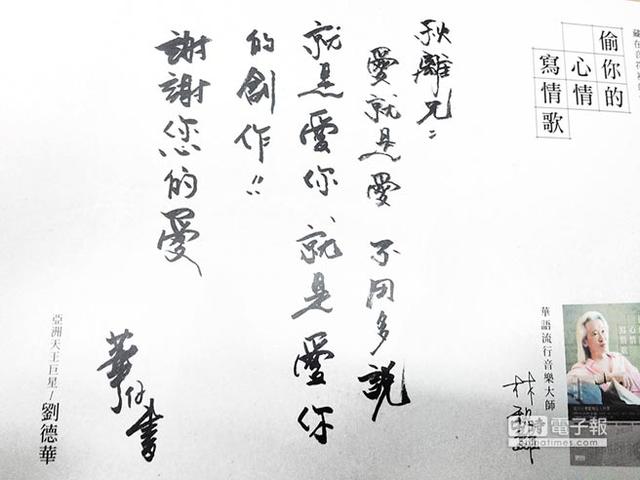 偷你的
心情
寫情歌
華語流行音樂大師
林秋離
秋離兄：
愛就是愛 不用多說
就是愛你 就是愛你
的創作!!
謝謝您的愛
華仔書
亞洲天王巨星/劉德華
中時電子報
chinatimes.com